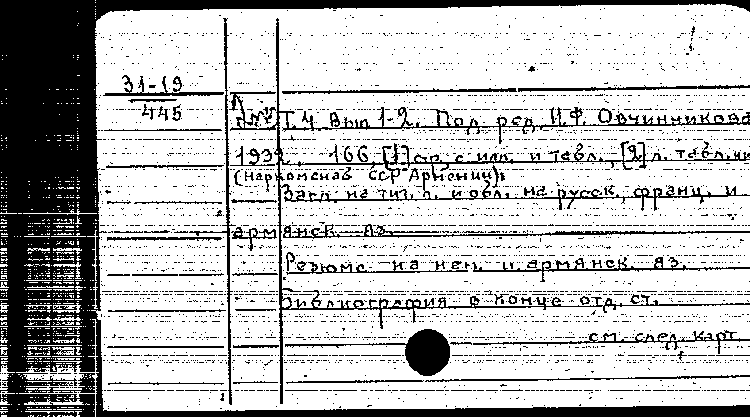 31-19
445
Т. 4 Вып 1-2. Под ред. И.Ф. Овчинникова
1932. 166, [1] стр. с илл. и табл., [2] л. табл.
(Наркомснаб ССР Армении).
Загл. на тит. л. и обл. на русск., франц. и
армянск. яз.
Резюме на нем. и армянск. яз.
Библиография в конце отд. ст.
см. след. карт.